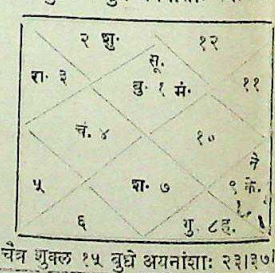 २ शु.
१२
सू.
रा. ३
बु. १ मं.
११
चं. ४
१०
ने
९ के.
५
श. ७
६
गु. ८ ह.
चैत्र शुक्ल १५ बुधे अयनांशाः २३।३७